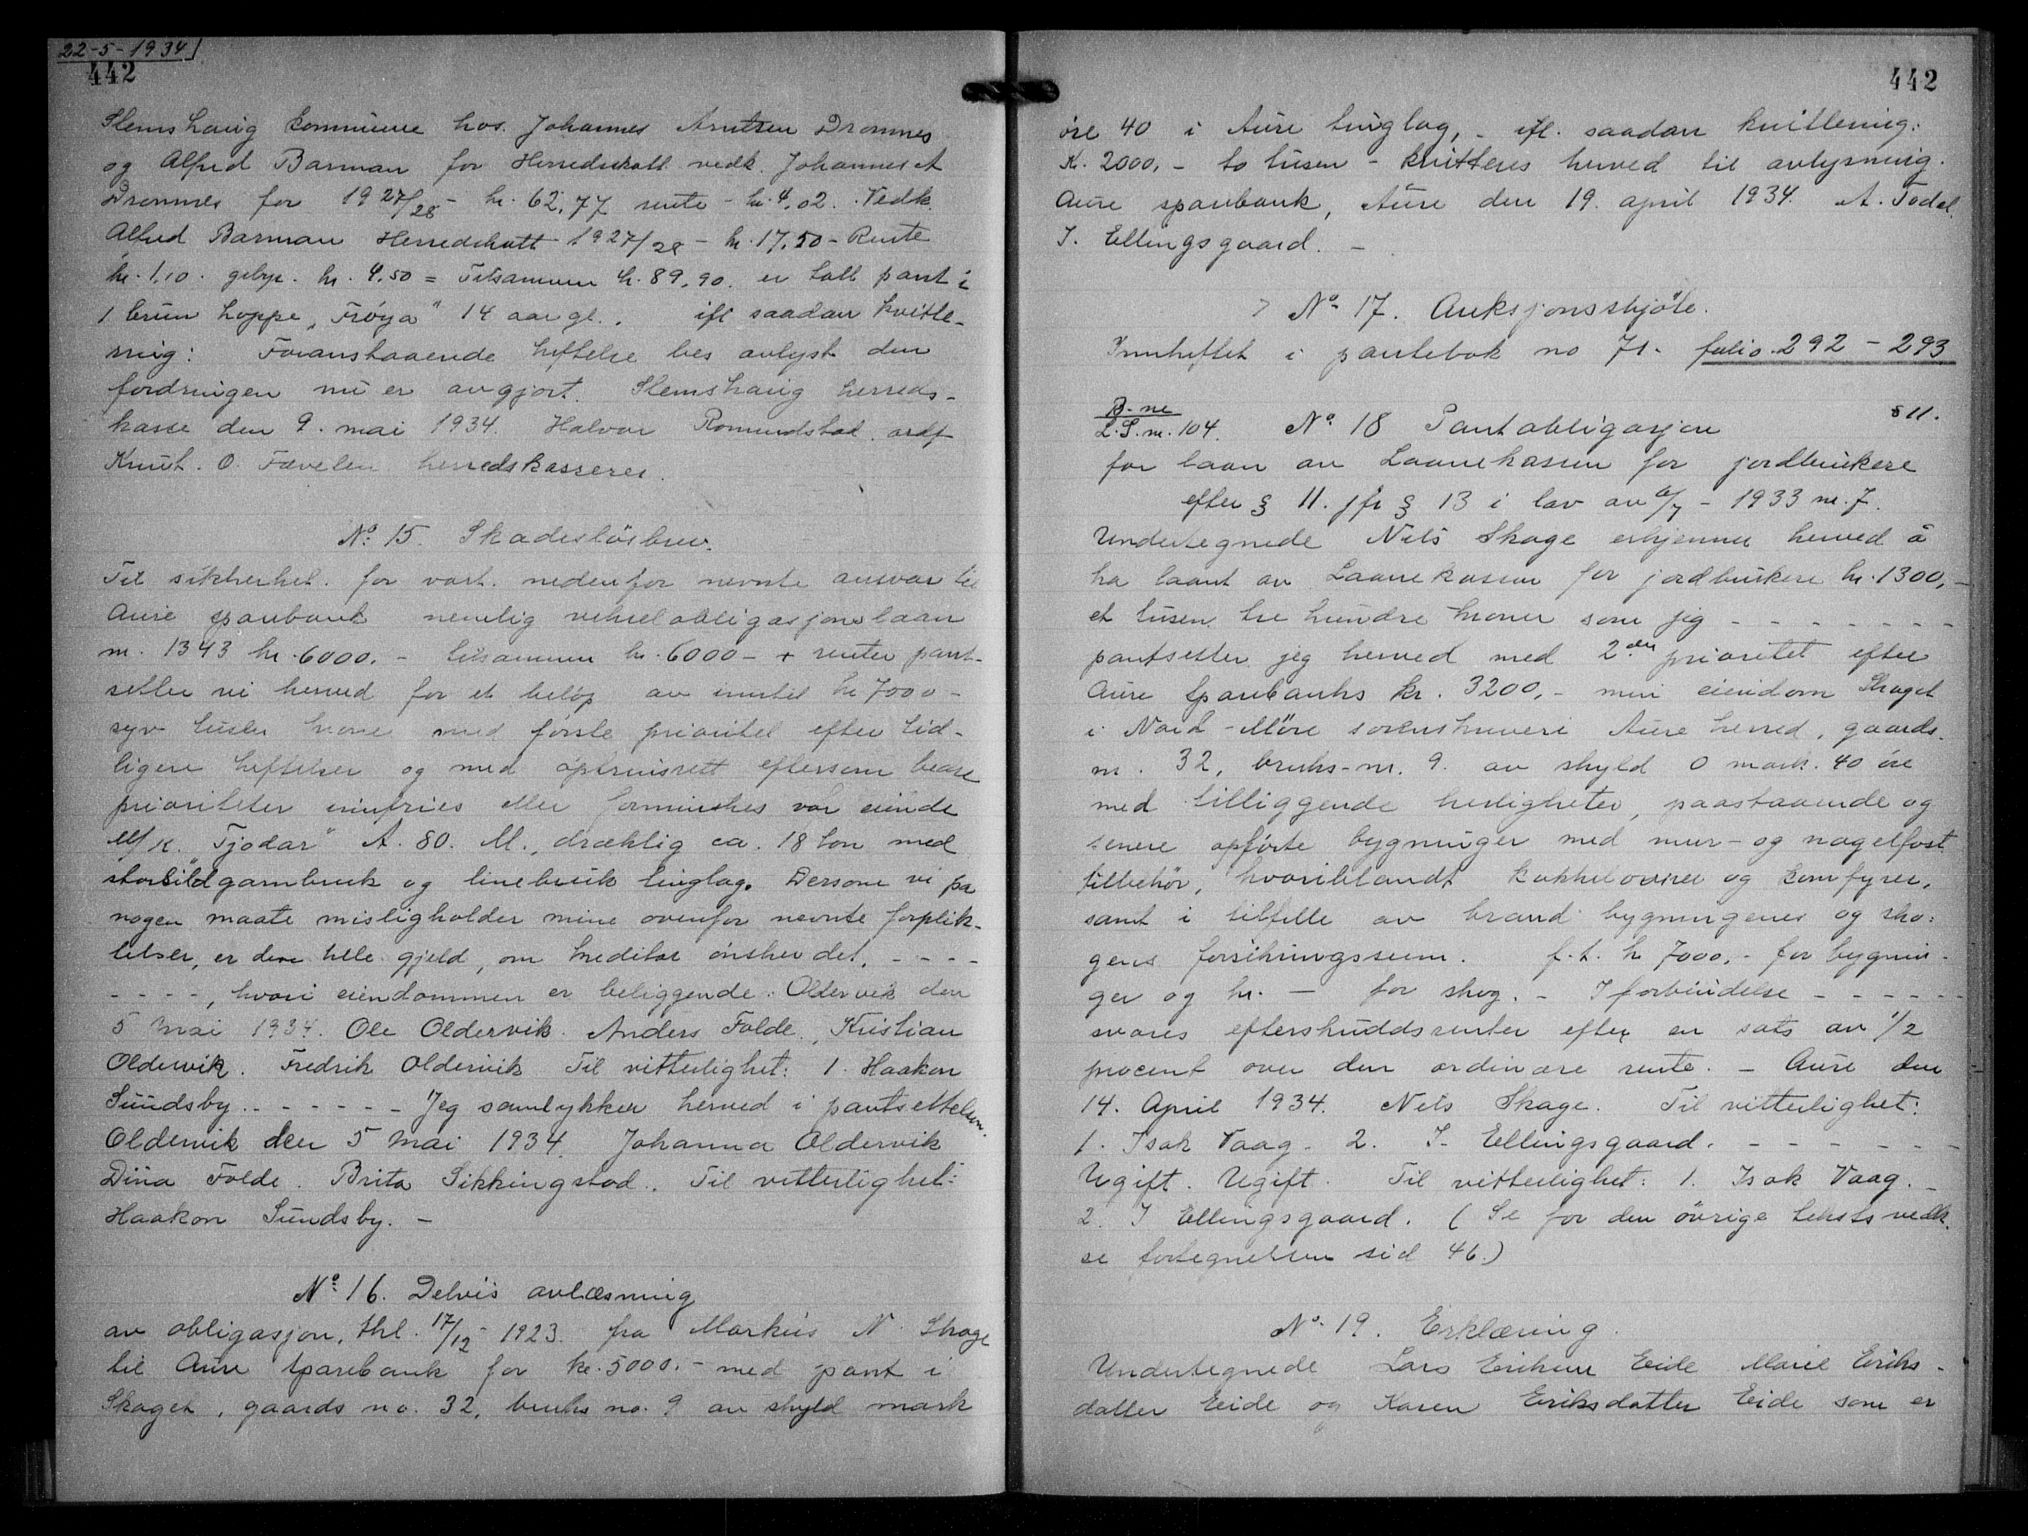 22-5-1934
442
Slemshaug kommune hos Johannes Arntsen Dromnes
og Alfred Barman for Herredskatt vedk. Johannes A
Dromnes for 1927/28 - kr. 62,77 rente - kr. 4,02. Vedk.
Alfred Barman Herredskatt 1927/28 - kr. 17,50 - Rente
kr. 1,10. gebyr. kr. 4,50 = Tilsammen kr. 89,90. er tatt pant i
1 brun hoppe „Frøya" 14 aar gl.. ifl saadan kvitte-
ring: Foranstaaende heftelse bes avlyst den
fordringen nu er avgjort. Slemshaug herreds-
kasse den 9. mai 1934. Halvor Romundstad. ordf
Knut. O. Fævelen herredskasserer.
No. 15. Skadesløsbrev.
Til sikkerhet. for vort. nedenfor nevnte ansvar til
Aure sparebank nemlig vekselobligasjonslaan
nr. 1343 kr. 6000.- tilsammen kr. 6000- + renter pant-
setter vi herved for et beløp av inntil kr 7000-
syv tusen krone med første prioritet efter tid-
ligere heftelser og med optrinsrett eftersom bedre
prioriteter innfries eller forminskes vor eiende
M/K. „Tjodar" A. 80. M., dræktig ca. 18 ton med
storsildgarnbruk og linebruk tinglag. Dersom vi pa
nogen maate misligholder mine ovenfor nevnte forplik-
telser, er den hele gjeld, om kreditor ønsker det, - - - -
- - - -, hvori eiendommen er beliggende. Oldervik den
5 mai 1934. Ole Oldervik. Anders Folde., Kristian
Oldervik. Fredrik Oldervik Til vitterlighet: 1. Haakon
Sundsby. - - - - - - Jeg samtykker herved i pantsettelsen.
Oldervik den 5 Mai 1934. Johanna Oldervik
Dina Folde. Brita Sikkingstad. Til vitterlighet:
Haakon Sundsby. -
No. 16. Delvis avlæsning
av obligasjon, thl. 17/12 - 1923. fra Markus N Skage
til Aure Sparebank for kr. 5000.- med pant i
Skaget, gaards no. 32, bruks no. 9 av skyld mark
442
øre 40 i Aure tinglag, - ifl. saadan kvittering:
Kr. 2000,- to tusen - kvitteres herved til avlysning.
Aure sparebank, Aure den 19. april 1934. A. Todal
I. Ellingsgaard. -
No. 17. Auksjonsskjøte.
Innheftet i pantebok no 71. folio. 292 - 293
B-ne
L.S. nr. 104. No. 18 Pantobligasjon § 11.
for laan av Laanekassen for jordbrukere
efter § 11. jfr § 13 i lov av 6/7 - 1933 nr. 7.
Undertegnede Nils Skage erkjenner herved å
ha laant av Laanekassen for jordbrukere kr. 1300,-
et tusen tre hundre kroner som jeg - - - - - - -
pantsetter jeg herved med 2den prioritet efter
Aure Sparebanks kr. 3200,- min eiendom Skaget
i Nord-Møre sorenskriveri Aure herred, gaards-
nr. 32, bruks-nr. 9. av skyld 0 mark. 40 øre
med tilliggende herligheter, paastaaende og
senere opførte bygninger med mur- og nagelfast
tilbehør, hvoriblandt kakkelovner og komfyrer,
samt i tilfelle av brand bygningenes og sko-
gens forsikringssum. f.t. kr 7000.- for bygnin-
ger og kr. - for skog. - I forbindelse - - - - - -
svares efterskuddsrenter efter en sats av 1/2
procent over den ordinære rente. - Aure den
14. April 1934. Nils Skage. Til vitterlighet:
1. Isak Vaag. 2. I. Ellingsgaard. - - - - - - -
Ugift. Ugift. Til vitterlighet: 1. Isak Vaag. -
2. I Ellingsgaard. (Se for den øvrige teksts vedk.
se fortegnelsen sid 46.)
No. 19. Erklæring.
Undertegnede Lars Eriksen Eide Marie Eriks-
datter Eide og Karen Eriksdatter Eide som er